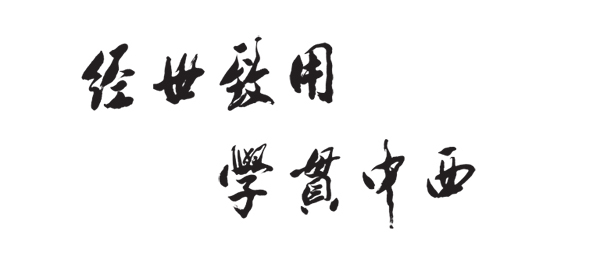 经世致用
學貫中西